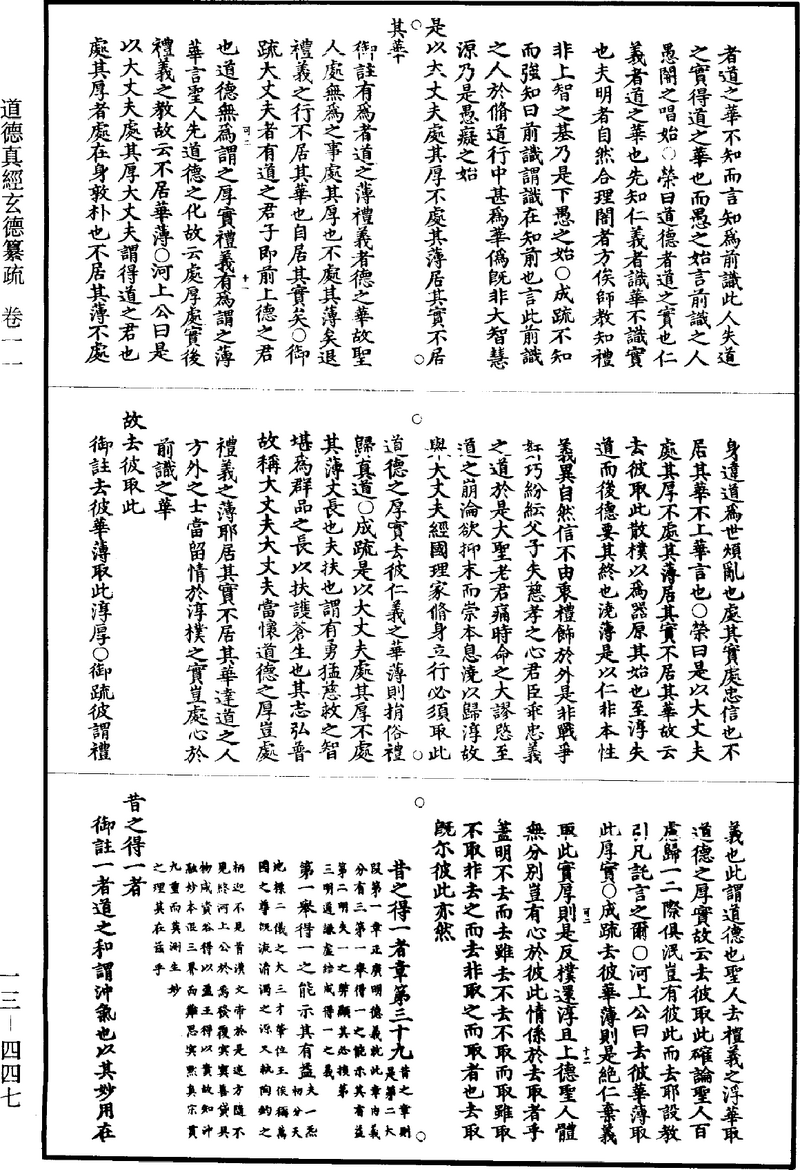 道德真經玄德纂疏　卷一一
一三—四四七
者道之華不知而言知為前識此人失道
之實得道之華也而愚之始言前識之人
愚闇之唱始○榮曰道德者道之實也仁
義者道之華也先知仁義者識華不識實
也夫明者自然合理闇者方俟師教知禮
非上智之基乃是下愚之始○成疏不知
而強知曰前識謂識在知前也言此前識
之人於脩道行中甚為華偽既非大智慧
源乃是愚癡之始
是以大丈夫處其厚不處其薄居其實不居
其華
御註有為者道之薄禮義者德之華故聖
人處無為之事處其厚也不處其薄矣退
禮義之行不居其華也自居其實矣○御
疏大丈夫者有道之君子即前上德之君
也道德無為謂之厚實禮義有為謂之薄
華言聖人先道德之化故云處厚處實後
禮義之教故云不居華薄○河上公曰是
以大丈夫處其厚大丈夫謂得道之君也
處其厚者處在身敦朴也不居其薄不處
身違道為世煩亂也處其實處忠信也不
居其華不上華言也○榮曰是以大丈夫
處其厚不處其薄居其實不居其華故云
去彼取此散樸以為器原其始也至淳失
道而後德要其終也澆薄是以仁非本性
義異自然信不由衷禮飾於外是非戰爭
奸巧紛紜父子失慈孝之心君臣乖忠義
之道於是大聖老君痛時命之大謬愍至
道之崩淪欲抑末而崇本息澆以歸淳故
與大丈夫經國理家脩身立行必須取此
道德之厚實去彼仁義之華薄則捐俗禮
歸真道○成疏是以大丈夫處其厚不處
其薄丈長也夫扶也謂有勇猛慈救之智
堪為群品之長以扶護蒼生也其志弘普
故稱大丈夫大丈夫當懷道德之厚豈處
禮義之薄耶居其實不居其華達道之人
方外之士當留情於淳樸之實豈處心於
前識之華
故去彼取此
御註去彼華薄取此淳厚○御疏彼謂禮
義也此謂道德也聖人去禮義之浮華取
道德之厚實故云去彼取此確論聖人百
慮歸一二際俱泯豈有彼此而去耶設教
引凡託言之爾○河上公曰去彼華薄取
此厚實○成疏去彼華薄則是絕仁棄義
取此實厚則是反樸還淳且上德聖人體
無分別豈有心於彼此情係於去取者乎
蓋明不去而去雖去不去不取而取雖取
不取非去之而去非取之而取者也去取
既尔彼此亦然
昔之得一者章第三十九
昔之章則
是第二大
段第一章正廣明德義就此章內義
分有三第一舉得一之能示其有益
第二明失一之弊顯其必損第
三明道謙虛培成得一之義
第一舉得一之能示其有益
夫一炁
初分天
地標二儀之大三才肇位王侯稱萬
國之尊
昔之得一者
御註一者道之和謂沖氣也以其妙用在